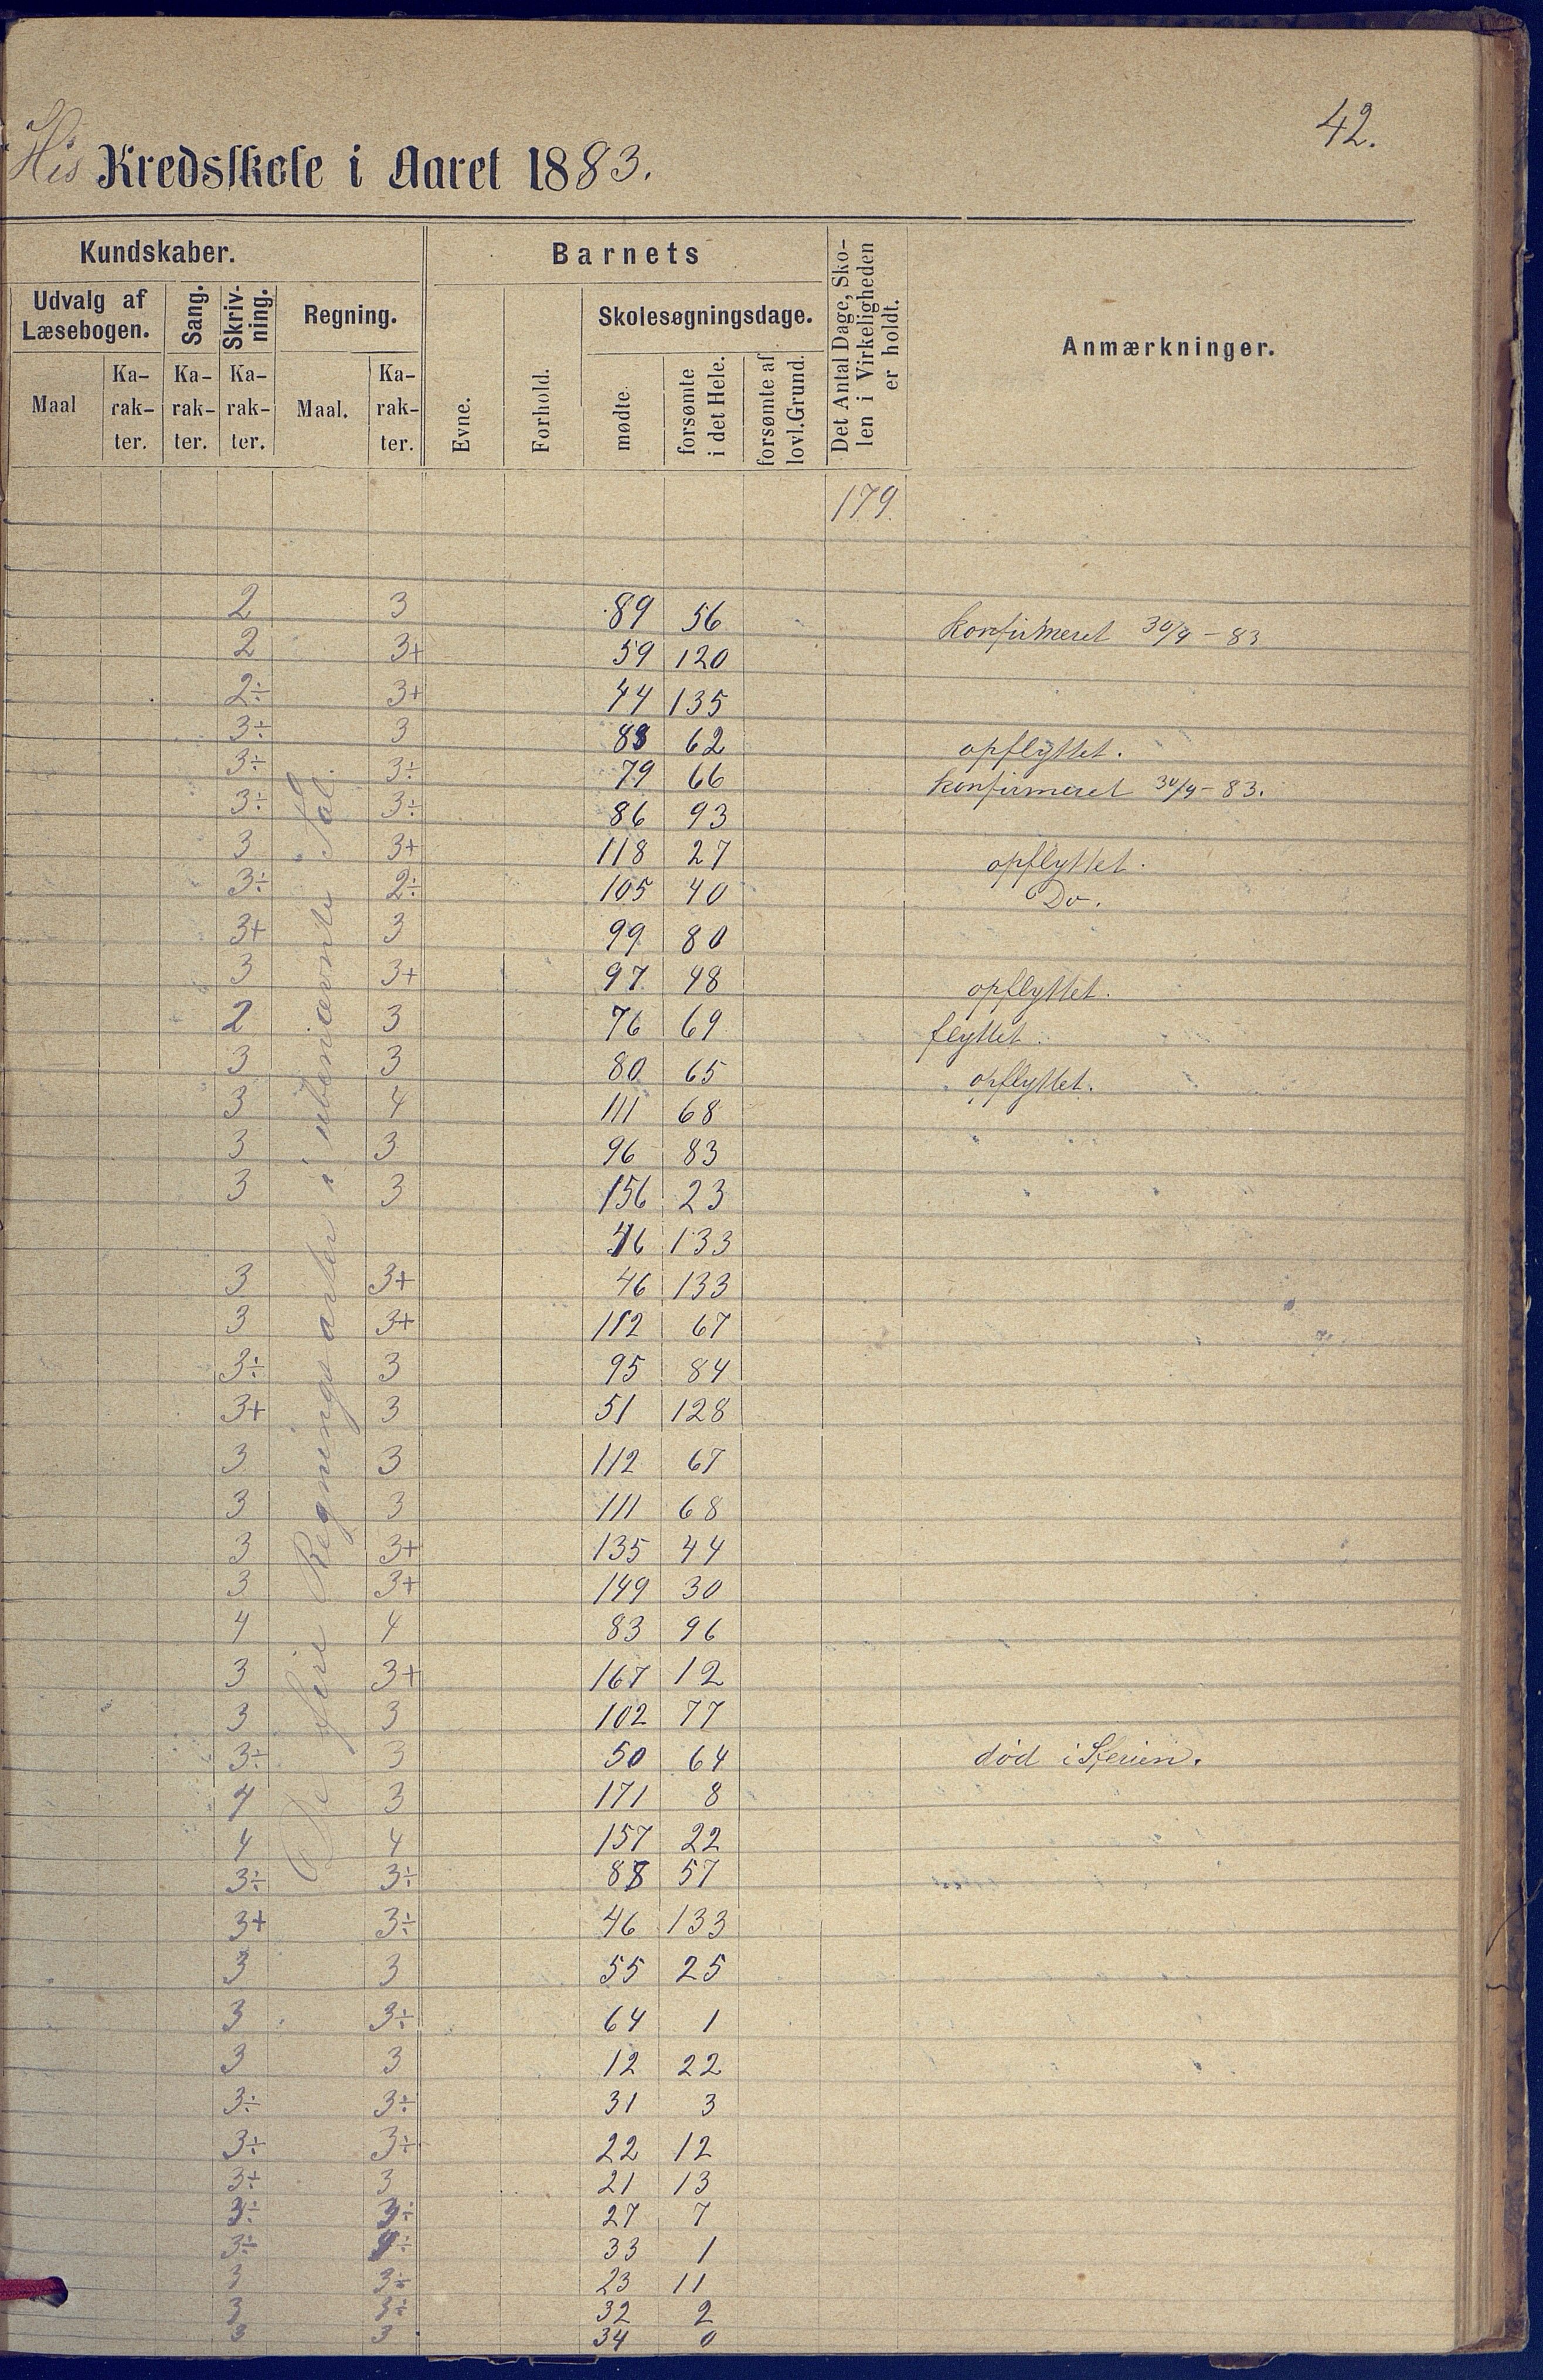 42.
His Kredsskole i Aaret 1883.
Kundskaber. Barnets Det Antal Dage, Sko-len i Virkeligheden er holdt. Anmærkninger.
Udvalg af Læsebogen. Sang. Skriv-ning. Regning. Evne. Forhold. Skolesøgningsdage.
Maal Ka-rak-ter. Ka-rak-ter. Ka-rak-ter. Maal. Ka-rak-ter. mødte. forsømte i det Hele. forsømte af lovl. Grund.
179.
De fire Regningsarter i ubenævnte Tal.
2 3 89 56 Konfirmeret 30/9 - 83
2 3+ 59 120
2÷ 3+ 44 135
3÷ 3 83 62 opflyttet.
3÷ 3÷ 79 66 Konfirmeret 30/9 - 83.
3÷ 3÷ 86 93
3 3+ 118 27 opflyttet.
3÷ 2÷ 105 40 Do.
3+ 3 99 80
3 3+ 97 48 opflyttet.
2 3 76 69 flyttet.
3 3 80 65 opflyttet.
3 4 111 68
3 3 96 83
3 3 156 23
46 133
3 3+ 46 133
3 3+ 112 67
3÷ 3 95 84
3+ 3 51 128
3 3 112 67
3 3 111 68
3 3+ 135 44
3 3+ 149 30
4 4 83 96
3 3+ 167 12
3 3 102 77
3÷ 3 50 64 død i Ferien.
4 3 171 8
4 4 157 22
3÷ 3÷ 88 57
3+ 3÷ 46 133
3 3 55 25
3 3÷ 64 1
3 3 12 22
3÷ 3÷ 31 3
3÷ 3÷ 22 12
3+ 3 21 13
3÷ 3÷ 27 7
3÷ 33 1
3 3÷ 23 11
3 3÷ 32 2
3 3 34 0